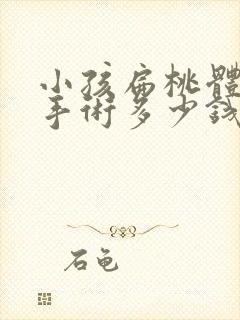 小孩扁桃體
手術多少錢
石龟